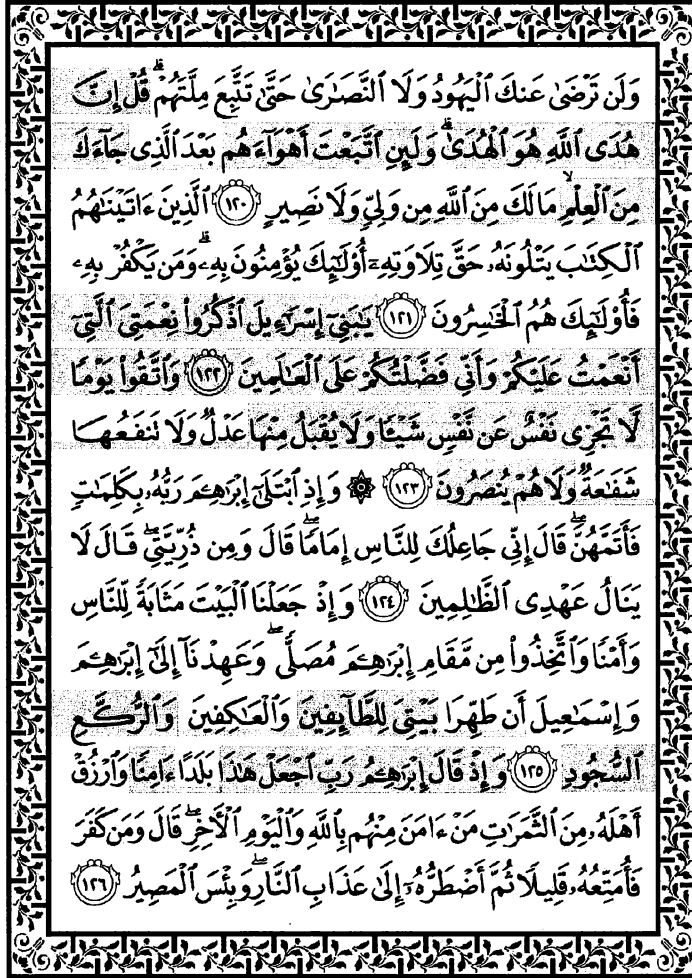 وَلَن تَرْضَىٰ عَنكَ ٱلْيَهُودُ وَلَا ٱلنَّصَـٰرَىٰ حَتَّىٰ تَتَّبِعَ مِلَّتَهُمْ ۗ قُلْ إِنَّ
هُدَى ٱللَّهِ هُوَ ٱلْهُدَىٰ ۗ وَلَئِنِ ٱتَّبَعْتَ أَهْوَآءَهُم بَعْدَ ٱلَّذِى جَآءَكَ
مِنَ ٱلْعِلْمِ ۙ مَا لَكَ مِنَ ٱللَّهِ مِن وَلِىٍّ وَلَا نَصِيرٍ ﴿١٢٠﴾ ٱلَّذِينَ ءَاتَيْنَـٰهُمُ
ٱلْكِتَـٰبَ يَتْلُونَهُۥ حَقَّ تِلَاوَتِهِۦٓ أُو۟لَـٰٓئِكَ يُؤْمِنُونَ بِهِۦ ۗ وَمَن يَكْفُرْ بِهِۦ
فَأُو۟لَـٰٓئِكَ هُمُ ٱلْخَـٰسِرُونَ ﴿١٢١﴾ يَـٰبَنِىٓ إِسْرَٰٓءِيلَ ٱذْكُرُوا۟ نِعْمَتِىَ ٱلَّتِىٓ
أَنْعَمْتُ عَلَيْكُمْ وَأَنِّى فَضَّلْتُكُمْ عَلَى ٱلْعَـٰلَمِينَ ﴿١٢٢﴾ وَٱتَّقُوا۟ يَوْمًا
لَّا تَجْزِى نَفْسٌ عَن نَّفْسٍ شَيْـًٔا وَلَا يُقْبَلُ مِنْهَا عَدْلٌ وَلَا تَنفَعُهَا
شَفَـٰعَةٌ وَلَا هُمْ يُنصَرُونَ ﴿١٢٣﴾ ۞ وَإِذِ ٱبْتَلَىٰٓ إِبْرَٰهِـۧمَ رَبُّهُۥ بِكَلِمَـٰتٍ
فَأَتَمَّهُنَّ ۖ قَالَ إِنِّى جَاعِلُكَ لِلنَّاسِ إِمَامًا ۖ قَالَ وَمِن ذُرِّيَّتِى ۖ قَالَ لَا
يَنَالُ عَهْدِى ٱلظَّـٰلِمِينَ ﴿١٢٤﴾ وَإِذْ جَعَلْنَا ٱلْبَيْتَ مَثَابَةً لِّلنَّاسِ
وَأَمْنًا وَٱتَّخِذُوا۟ مِن مَّقَامِ إِبْرَٰهِـۧمَ مُصَلًّى ۖ وَعَهِدْنَآ إِلَىٰٓ إِبْرَٰهِـۧمَ
وَإِسْمَـٰعِيلَ أَن طَهِّرَا بَيْتِىَ لِلطَّآئِفِينَ وَٱلْعَـٰكِفِينَ وَٱلرُّكَّعِ
ٱلسُّجُودِ ﴿١٢٥﴾ وَإِذْ قَالَ إِبْرَٰهِـۧمُ رَبِّ ٱجْعَلْ هَـٰذَا بَلَدًا ءَامِنًا وَٱرْزُقْ
أَهْلَهُۥ مِنَ ٱلثَّمَرَٰتِ مَنْ ءَامَنَ مِنْهُم بِٱللَّهِ وَٱلْيَوْمِ ٱلْـَٔاخِرِ ۖ قَالَ وَمَن كَفَرَ
فَأُمَتِّعُهُۥ قَلِيلًا ثُمَّ أَضْطَرُّهُۥٓ إِلَىٰ عَذَابِ ٱلنَّارِ ۖ وَبِئْسَ ٱلْمَصِيرُ ﴿١٢٦﴾